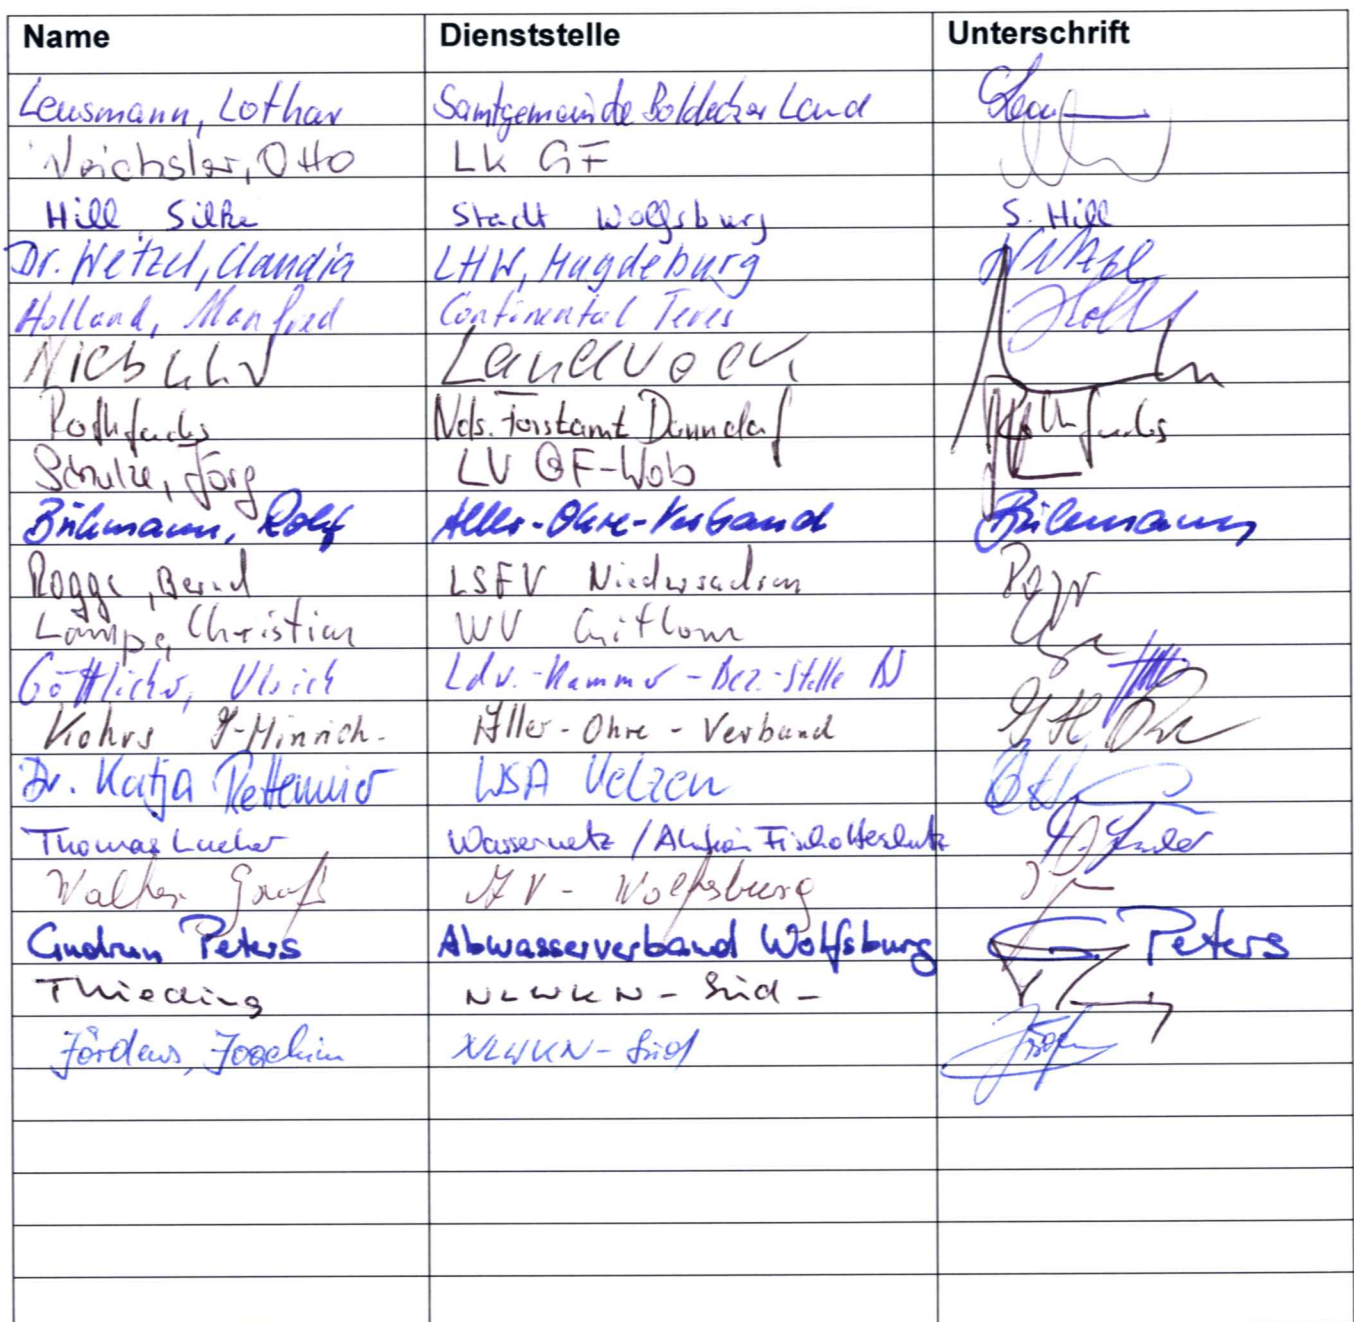 Name Dienststelle Unterschrift
Leusmann, Lothar Samtgemeinde Boldecker Land
Weichsler, Otto LK GF
Hill Silke Stadt Wolfsburg S. Hill
Dr. Wetzel, Claudia LHW, Magdeburg Wetzel
Holland, Manfred Continental Teves Holl
Niebuhr Landvolk
Rothfuchs Nds. Forstamt Danndorf Rothfuchs
Schulze, Jörg LV GF-Wob
Bühmann, Rolf Aller-Ohre-Verband Bühmann
Rogge, Bernd LSFV Niedersachsen
Lampe, Christian WV Gifhorn
Göttlicher, Ulrich Ldw.-Kammer - Bez.-Stelle BS
Kohrs J-Hinrich- Aller-Ohre-Verband
Dr. Katja Rettemeier WSA Uelzen
Thomas Lucker Wassernetz / Aktion Fischotterschutz
Walter Groß AV - Wolfsburg
Gudrun Peters Abwasserverband Wolfsburg G. Peters
Thieding NLWKN - Süd -
Jördens, Joachim NLWKN - Süd